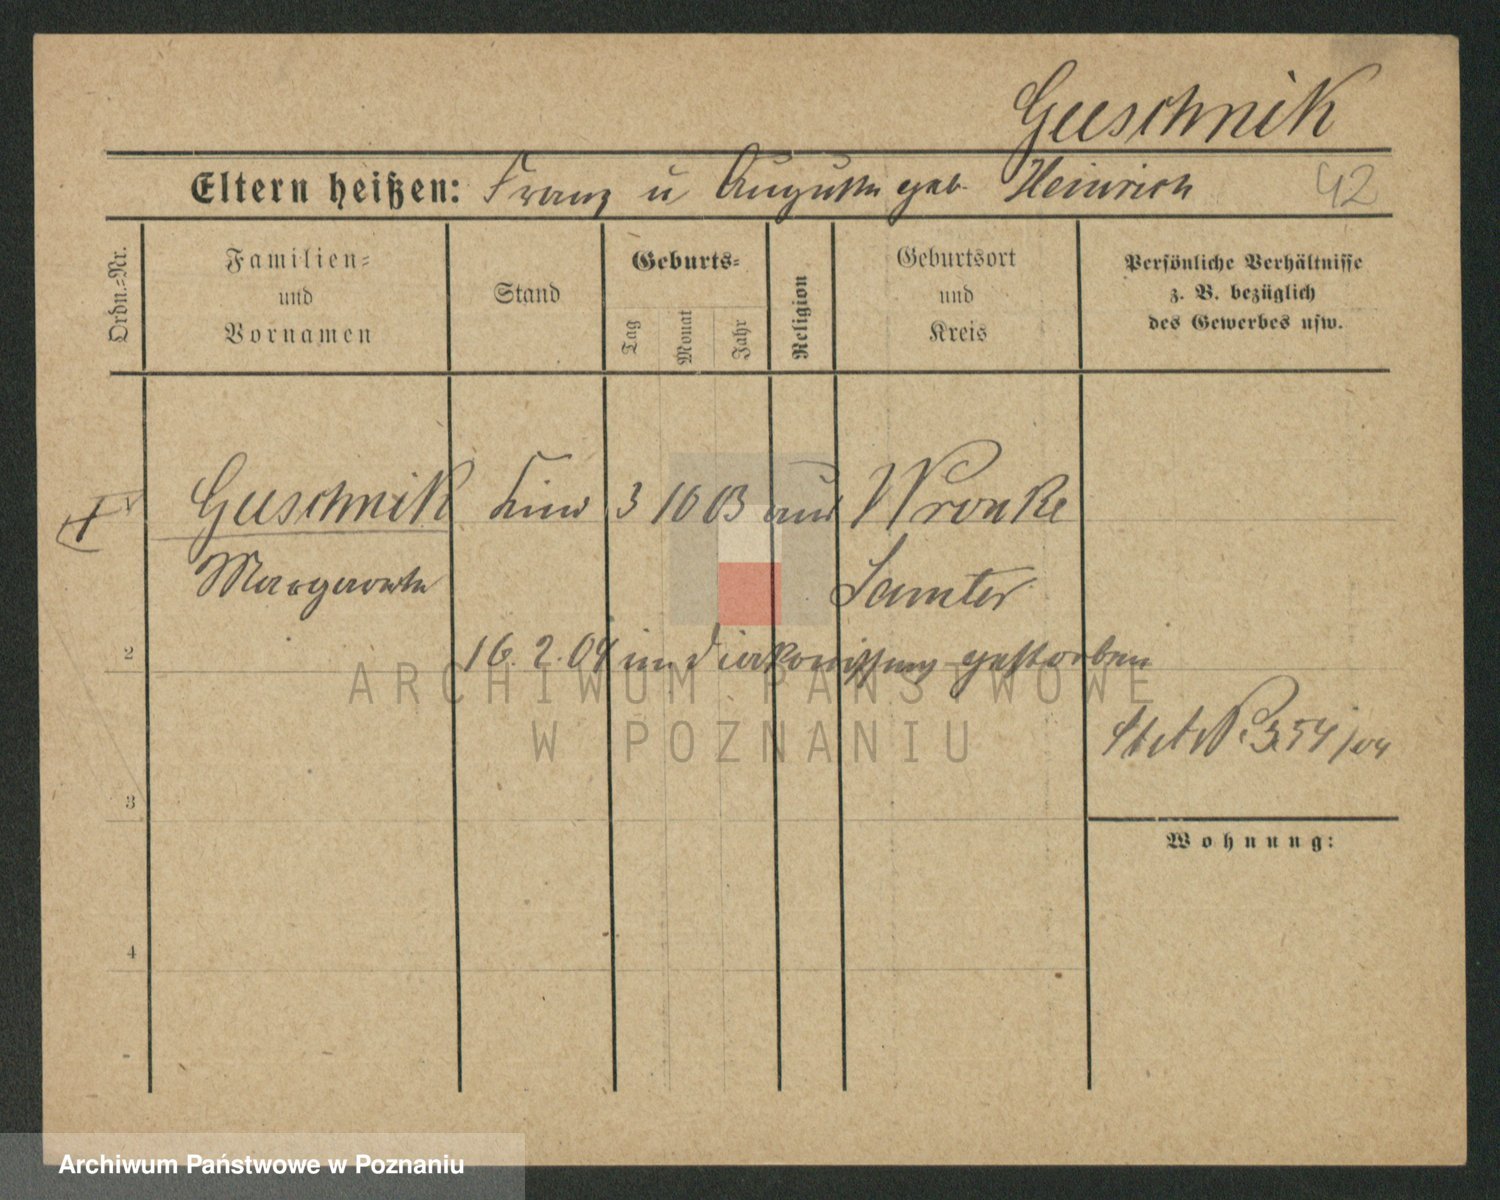 Guschnik
Eltern heißen: Franz u Auguste geb. Heinrich 42
Ordn.-Nr.
Familien-
und
Vornamen
Stand
Geburts-
Tag
Monat
Jahr
Religion
Geburtsort
und
Kreis
Persönliche Verhältnisse
z. B. bezüglich
des Gewerbes usw.
Guschnik Kind 3 10 03 Wronke
Margarete Samter
2
16. 2. 04 im gestorben
354/04
3
Wohnung:
4
ARCHIWUM PAŃSTWOWE
W POZNANIU
Archiwum Państwowe w Poznaniu